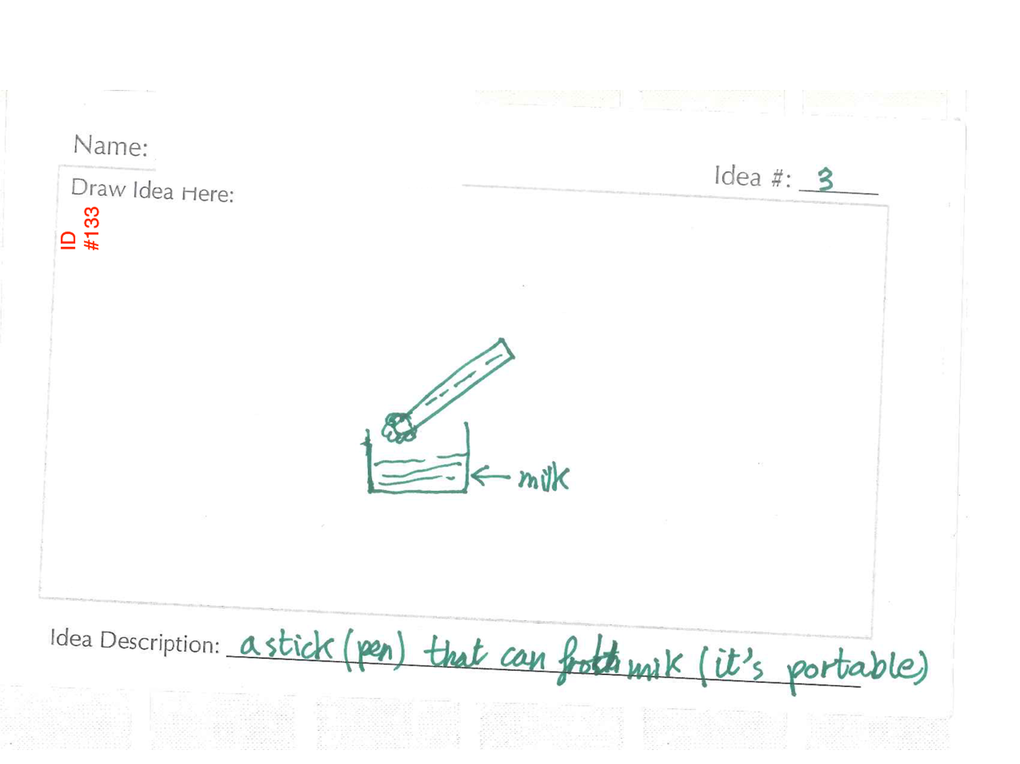 Name:
Idea #: 3
Draw Idea Here:
ID
#133
← milk
Idea Description: a stick (pen) that can froth milk (it's portable)